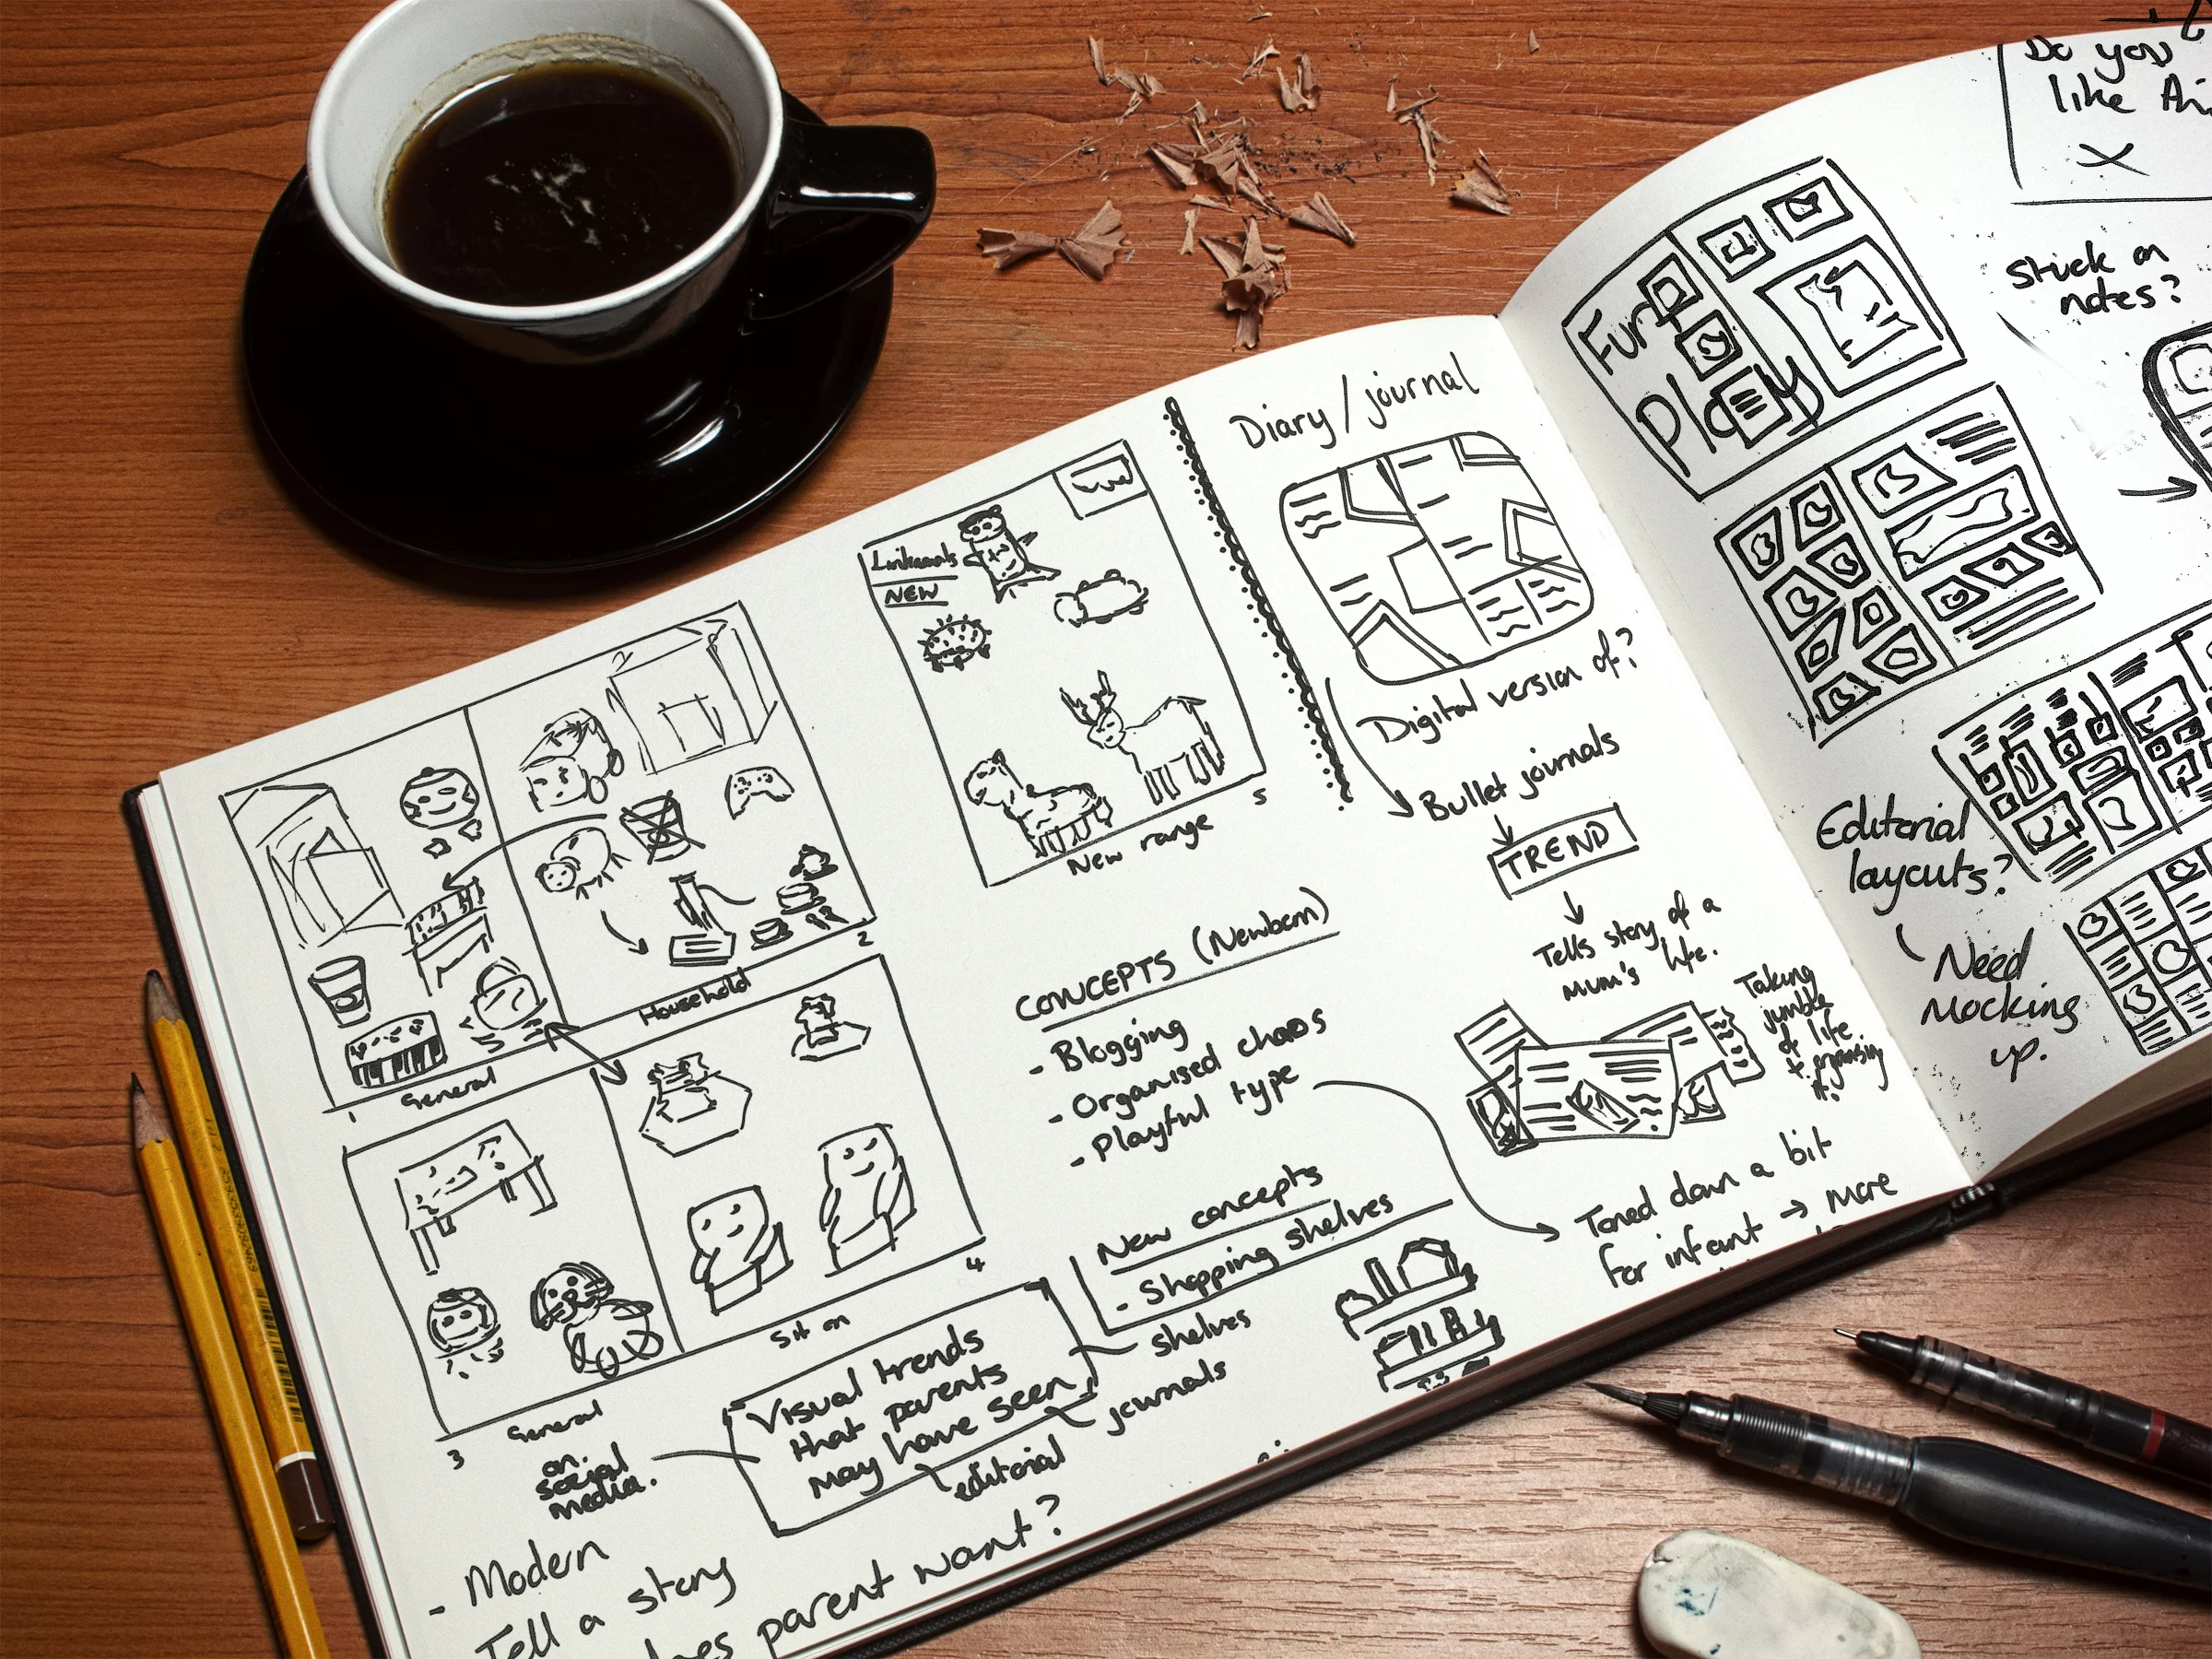 Diary/journal
NEW
5
New range
Digital version of?
Bullet journals
TREND
Tells story of a
mum's life.
Taking
jumble
of life
+ organising
it.
2
Household
1
General
CONCEPTS (Newborn)
- Blogging
- Organised chaos
- Playful type
Toned down a bit
for infant → more
New concepts
- Shopping shelves
shelves
journals
editorial
Visual trends
that parents
may have seen
on
social
media.
4
Sit on
3
General
- Modern
Tell a story
parent want?
Do you
like
X
Stick on
notes?
Play
Editorial
layouts?
Need
Mocking
up.